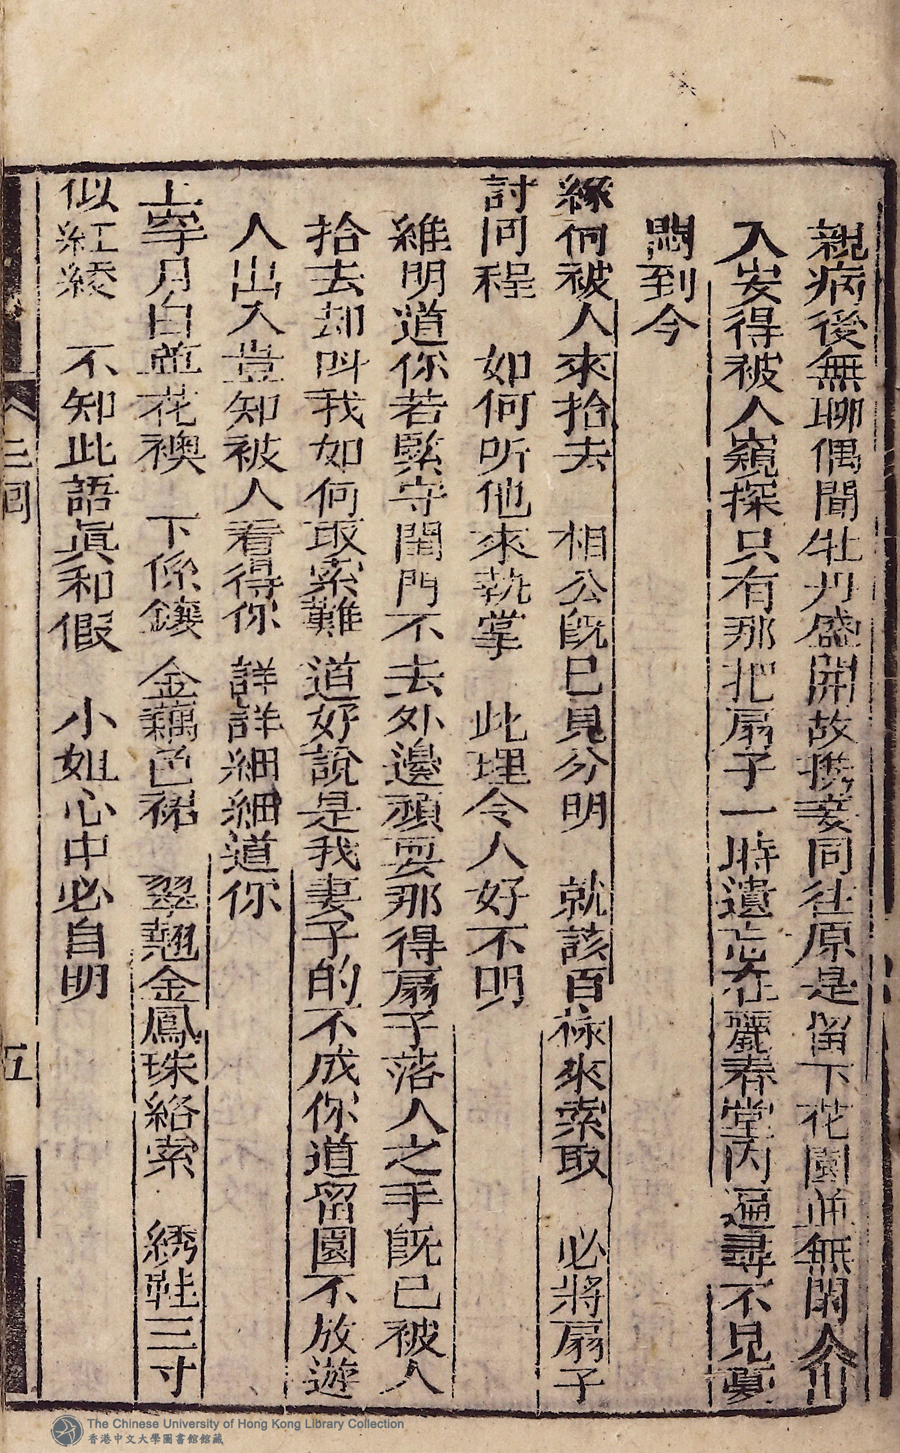 親病後無聊偶聞牡丹盛開故携妾同往原是留下花園並無閑人出
入安得被人窺探只有那把扇子一時遺忘在麗春堂內遍尋不見眞
悶到今
緣何被人來拾去　相公旣已見分明　就該百祿來索取　必將扇子
討回程　如何听他來執掌　此理令人好不明
維明道你若緊守閨門不去外邊頑耍那得扇子落人之手旣已被人
拾去却呌我如何取索難道好說是我妻子的不成你道留園不放遊
人出入豈知被人看得你詳詳細細道你
上穿月白並花襖　下係鑲金藕色裙　翠翹金鳳珠絡索　綉鞋三寸
似紅綾　不知此語眞和假　小姐心中必自明
三囘
五
The Chinese University of Hong Kong Library Collection
香港中文大學圖書館館藏